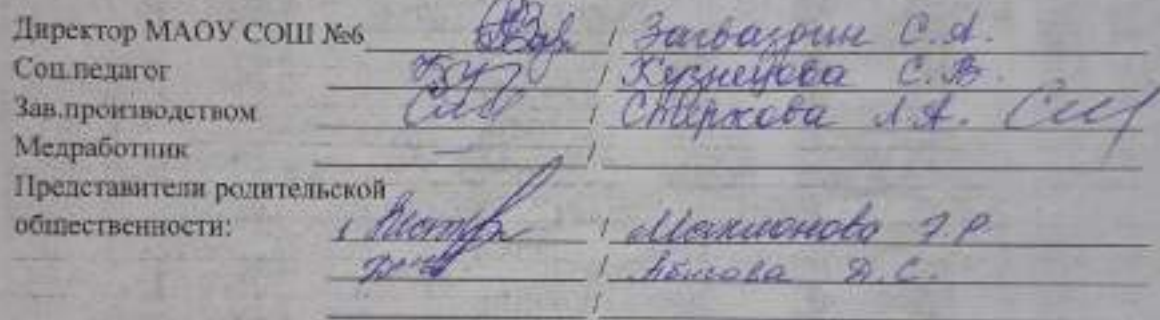 Директор МАОУ СОШ №6 / Загваздин С.А.
Соц.педагог / Кузнецова С.В.
Зав.производством / Стерхова Л.А.
Медработник — /
Представители родительской
общественности: / 
/ С.
/